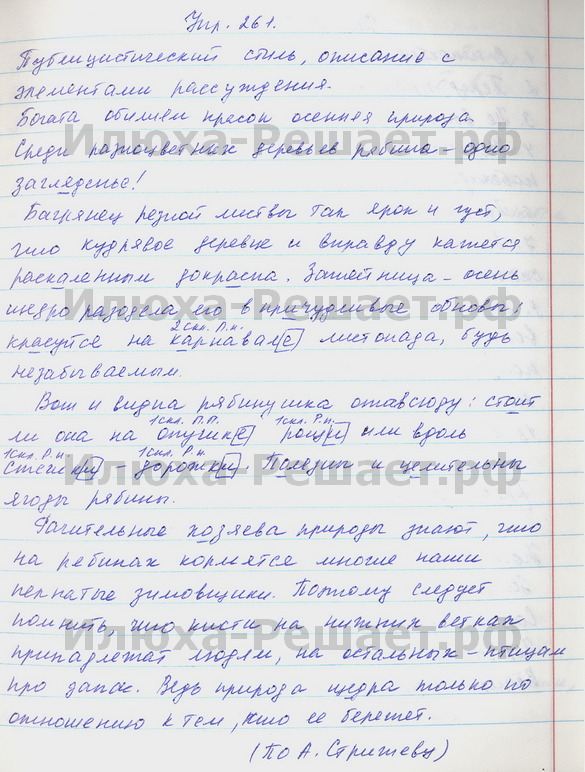 Упр. 261.
Публицистический стиль, описание с
элементами рассуждения.
Богата обилием красок осенняя природа.
Среди разноцветных деревьев рябина – одно
загляденье!
Багрянец резной листвы так ярок и густ,
что кудрявое деревце и вправду кажется
раскаленным докрасна. Затейница – осень
щедро разодела его в причудливые обновы,
2 скл. П.п.
красуйся на карнавале листопада, будь
незабываемым.
Вот и видна рябинушка отовсюду: стоит
1 скл. П.П. 1 скл. Р.п.
ли она на опушке рощи или вдоль
1 скл. Р.п. 1 скл. Р.п.
стежки – дорожки. Полезны и целительны
ягоды рябины.
Рачительные хозяева природы знают, что
на рябинах кормятся многие наши
пернатые зимовщики. Поэтому следует
помнить, что кисти на нижних ветках
принадлежат людям, на остальных – птицам
про запас. Ведь природа щедра только по
отношению к тем, кто ее бережет.
(По А. Стрижеву)
Илюха-Решает.рф
Илюха-Решает.рф
Илюха-Решает.рф
Илюха-Решает.рф